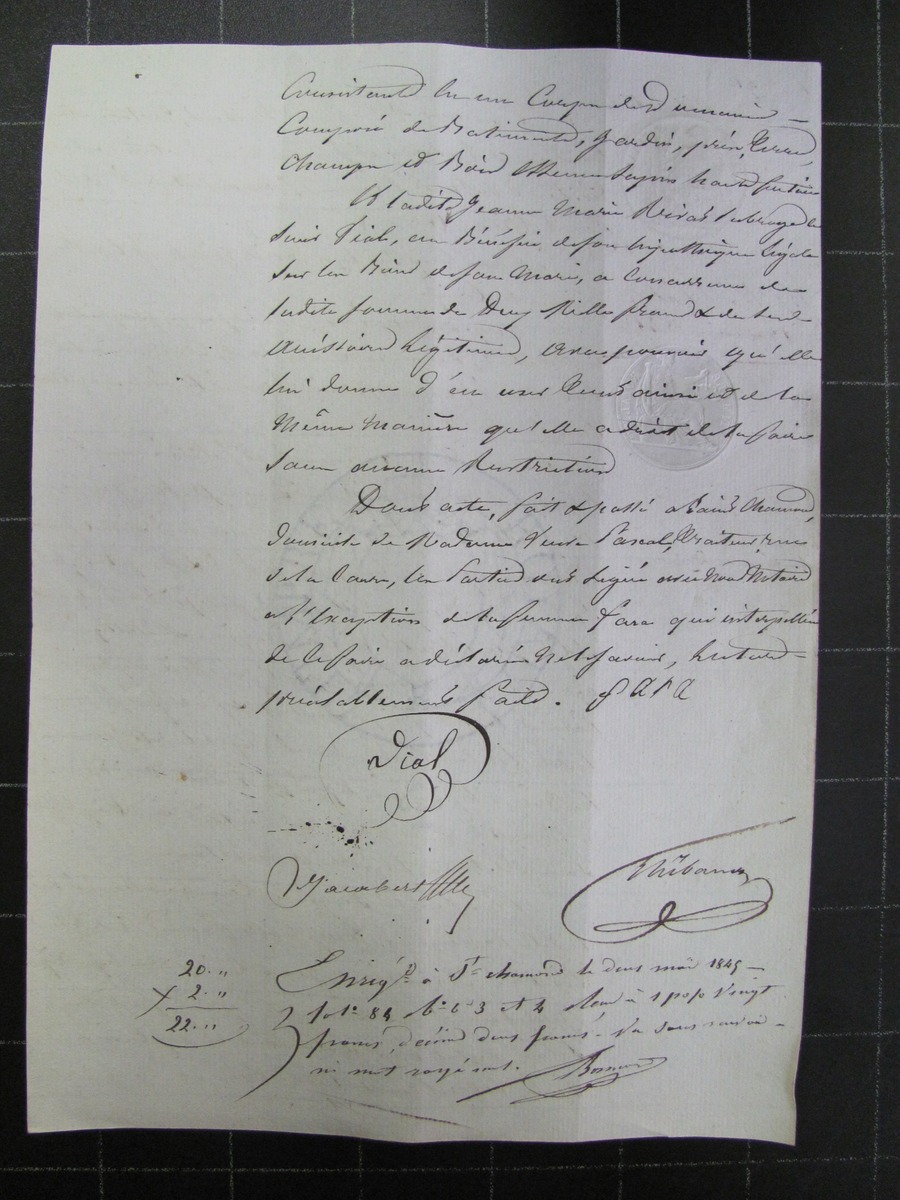 Consistant en un Corps de Domaine
Composé de Batiments, Jardin, prés, Terres,
Champs et Bois
Et ladite Jeanne Marie subroge le
Sieur Vial, au Bénéfice de son hypothèque légale
Sur les Biens de son Mari, a Concurrence de
ladite somme de Deux Mille francs & de ses
accessoires légitimes, avec pouvoir qu'elle
lui donne d'en user tout ainsi et de la
Même Manière qu'elle a droit de le faire
Sans aucune Restriction
Dont acte, fait & passé a Saint Chamond,
domicile de Madame Veuve Pascal, Traiteur, rue
de la les Parties ont Signé avec Nous Notaire
a l'Exception de la femme Fara qui interpellée
de le faire a déclaré Ne le Savoir, lecture
préalablement faite. FARA
Vial
Jacobert
Thibaud
20 "
2 "
22 "
Enreg. à St chamond le deux mai 1849
fo 84 Co 3 et 4 Reçu à 1 p % vingt
francs, décime deux francs.
ni mot rayé nul.